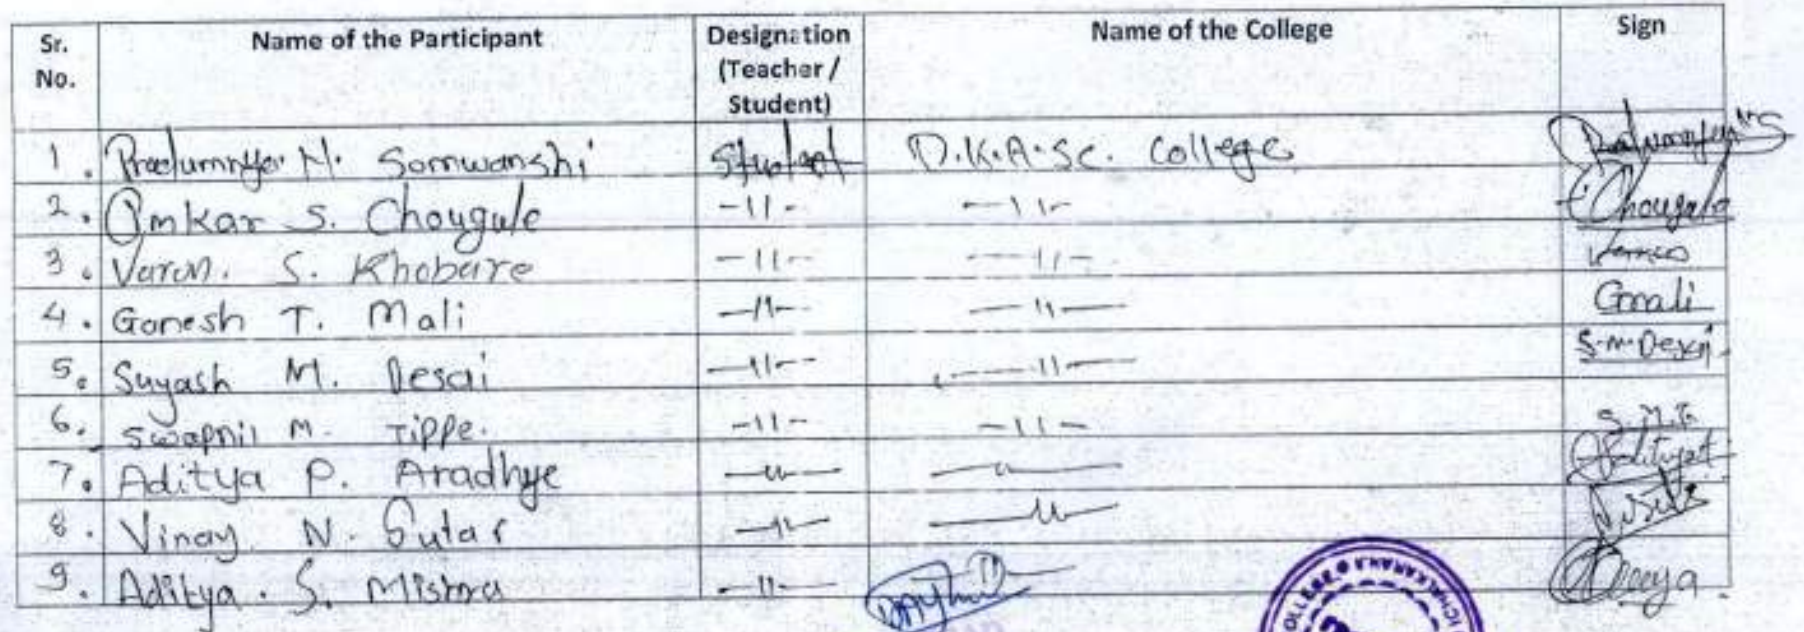 Sr. No. Name of the Participant Designation (Teacher / Student) Name of the College Sign
1. Pradumnya M. Somwanshi Student D.K.A.SC. College
2. Omkar S. Chougule -11- -11- Chougule
3. Varun. S. Khobare -11- -11-
4. Ganesh T. Mali -11- -11- Gmali
5. Suyash M. Desai -11- -11- S.M.Desai
6. Swapnil M. Tippe. -11- -11- S.M.T.
7. Aditya P. Aradhye -11- -11-
8. Vinay. N. Sutar -11- -11-
9. Aditya. S. Mishra -11- -11-
COLLEGE ICHALKARANJI